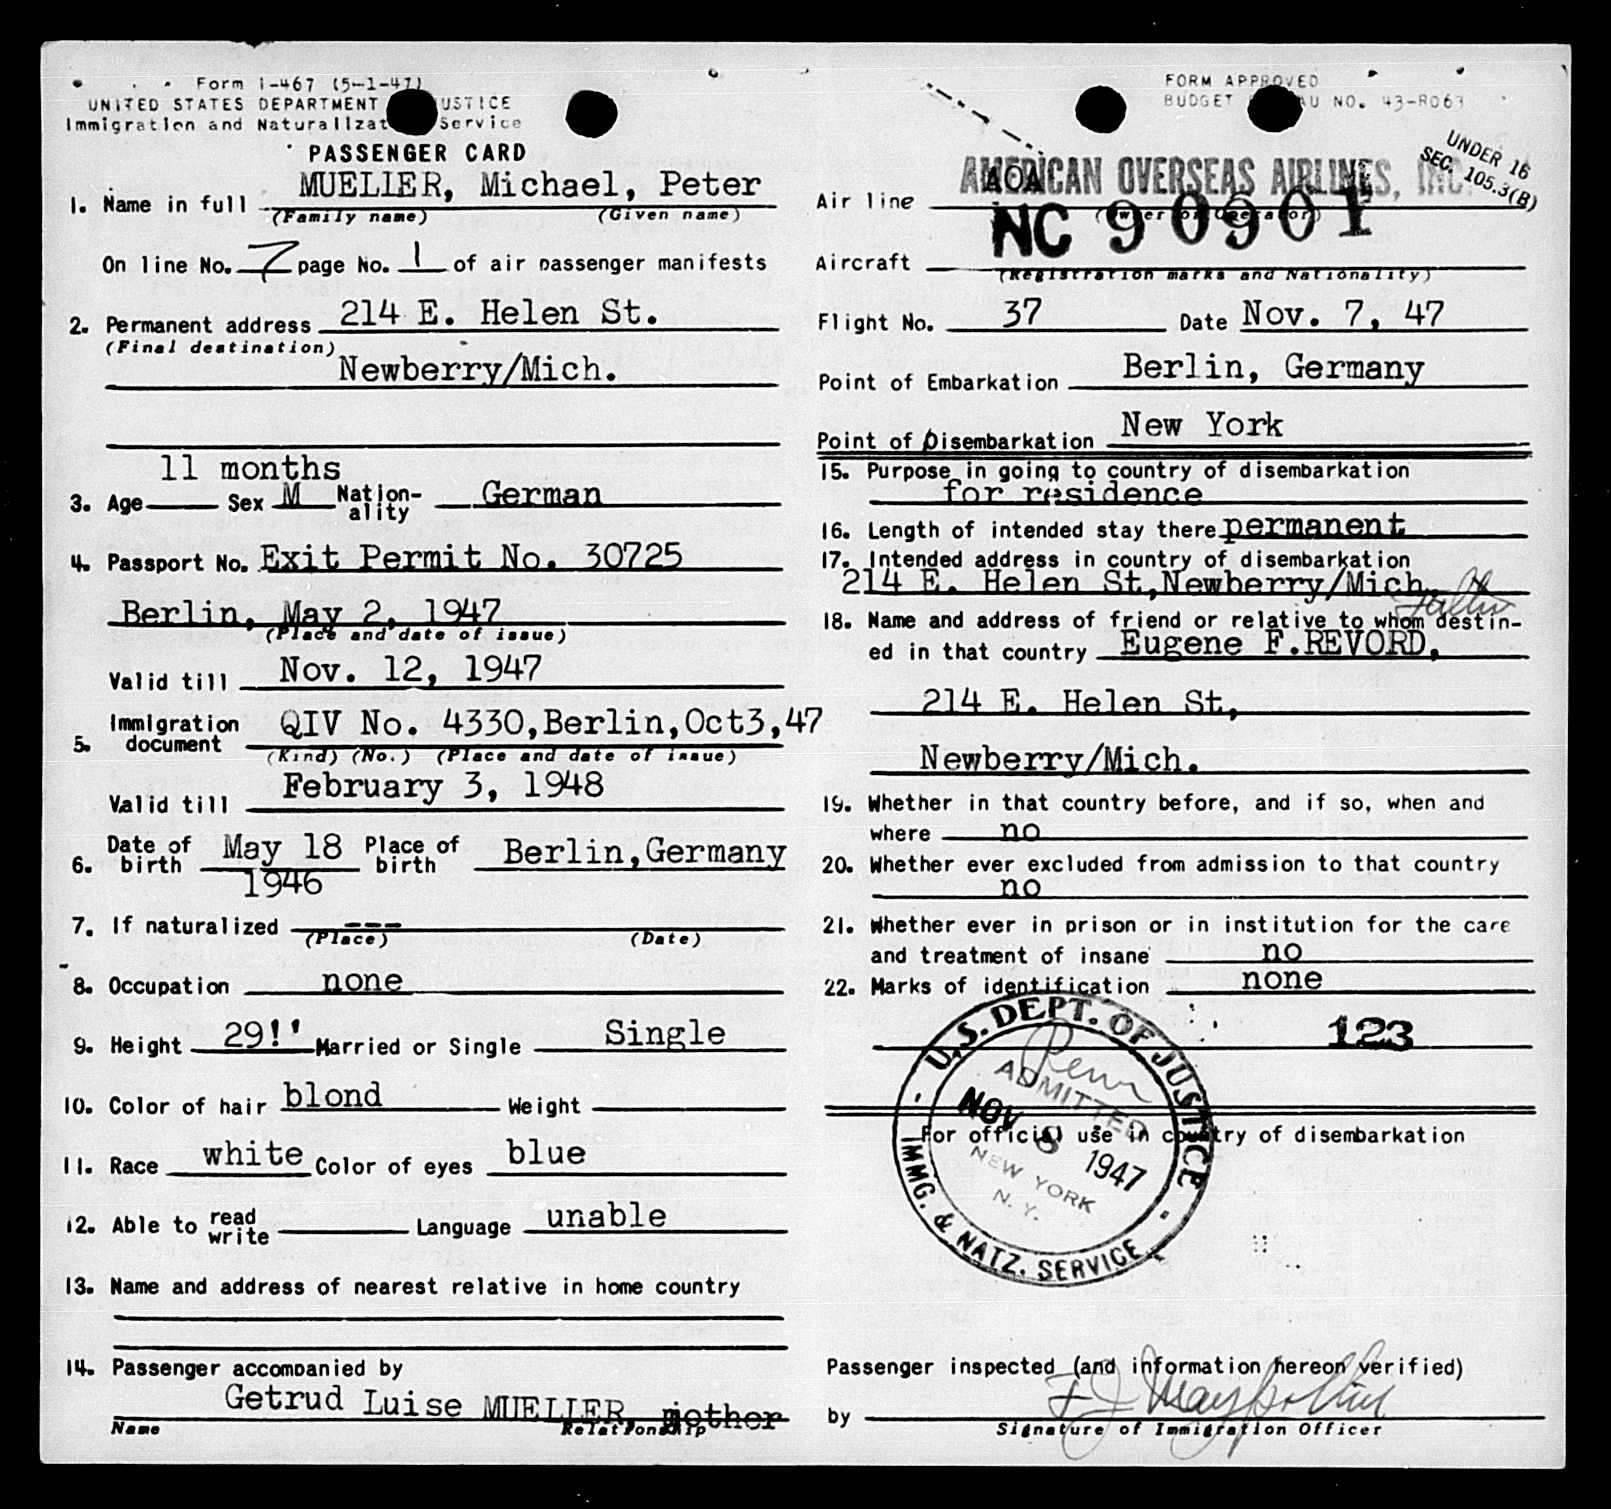 Form I-467 (5-1-47)
UNITED STATES DEPARTMENT USTICE
Immigration and Naturalizat Service
PASSENGER CARD
1. Name in full MUELLER, Michael, Peter
(Family name) (Given name)
On line No. 7 page No. 1 of air passenger manifests
2. Permanent address 214 E. Helen St.
(Final destination)
Newberry/Mich.
11 months
3. Age Sex M Nation-ality German
4. Passport No. Exit Permit No. 30725
Berlin, May 2, 1947
(Place and date of issue)
Valid till Nov. 12, 1947
5. Immigration document QIV No. 4330,Berlin,Oct3,47
(Kind) (No.) (Place and date of issue)
Valid till February 3, 1948
6. Date of birth May 18 1946 Place of birth Berlin,Germany
7. If naturalized ---
(Place) (Date)
8. Occupation none
9. Height 29!' Married or Single Single
10. Color of hair blond Weight
11. Race white Color of eyes blue
12. Able to read write Language unable
13. Name and address of nearest relative in home country
14. Passenger accompanied by
Getrud Luise MUELLER, mother
Name Relationship
FORM APPROVED
BUDGET AU NO. 43-R063
UNDER 16
SEC. 105.3(B)
Air line AOA AMERICAN OVERSEAS AIRLINES, INC.
(Owner or Operator)
Aircraft NC 90901
(Registration marks and Nationality)
Flight No. 37 Date Nov. 7, 47
Point of Embarkation Berlin, Germany
Point of Disembarkation New York
15. Purpose in going to country of disembarkation
for residence
16. Length of intended stay there permanent
17. Intended address in country of disembarkation
214 E. Helen St,Newberry/Mich.
18. Name and address of friend or relative to whom destin-
ed in that country Eugene F.REVORD,
214 E. Helen St,
Newberry/Mich.
19. Whether in that country before, and if so, when and
where no
20. Whether ever excluded from admission to that country
no
21. Whether ever in prison or in institution for the care
and treatment of insane no
22. Marks of identification none
123
U.S. DEPT. OF JUSTICE
ADMITTED
NOV 8 1947
NEW YORK
N. Y.
IMMG. & NATZ. SERVICE
For official use in country of disembarkation
Passenger inspected (and information hereon verified)
by
Signature of Immigration Officer